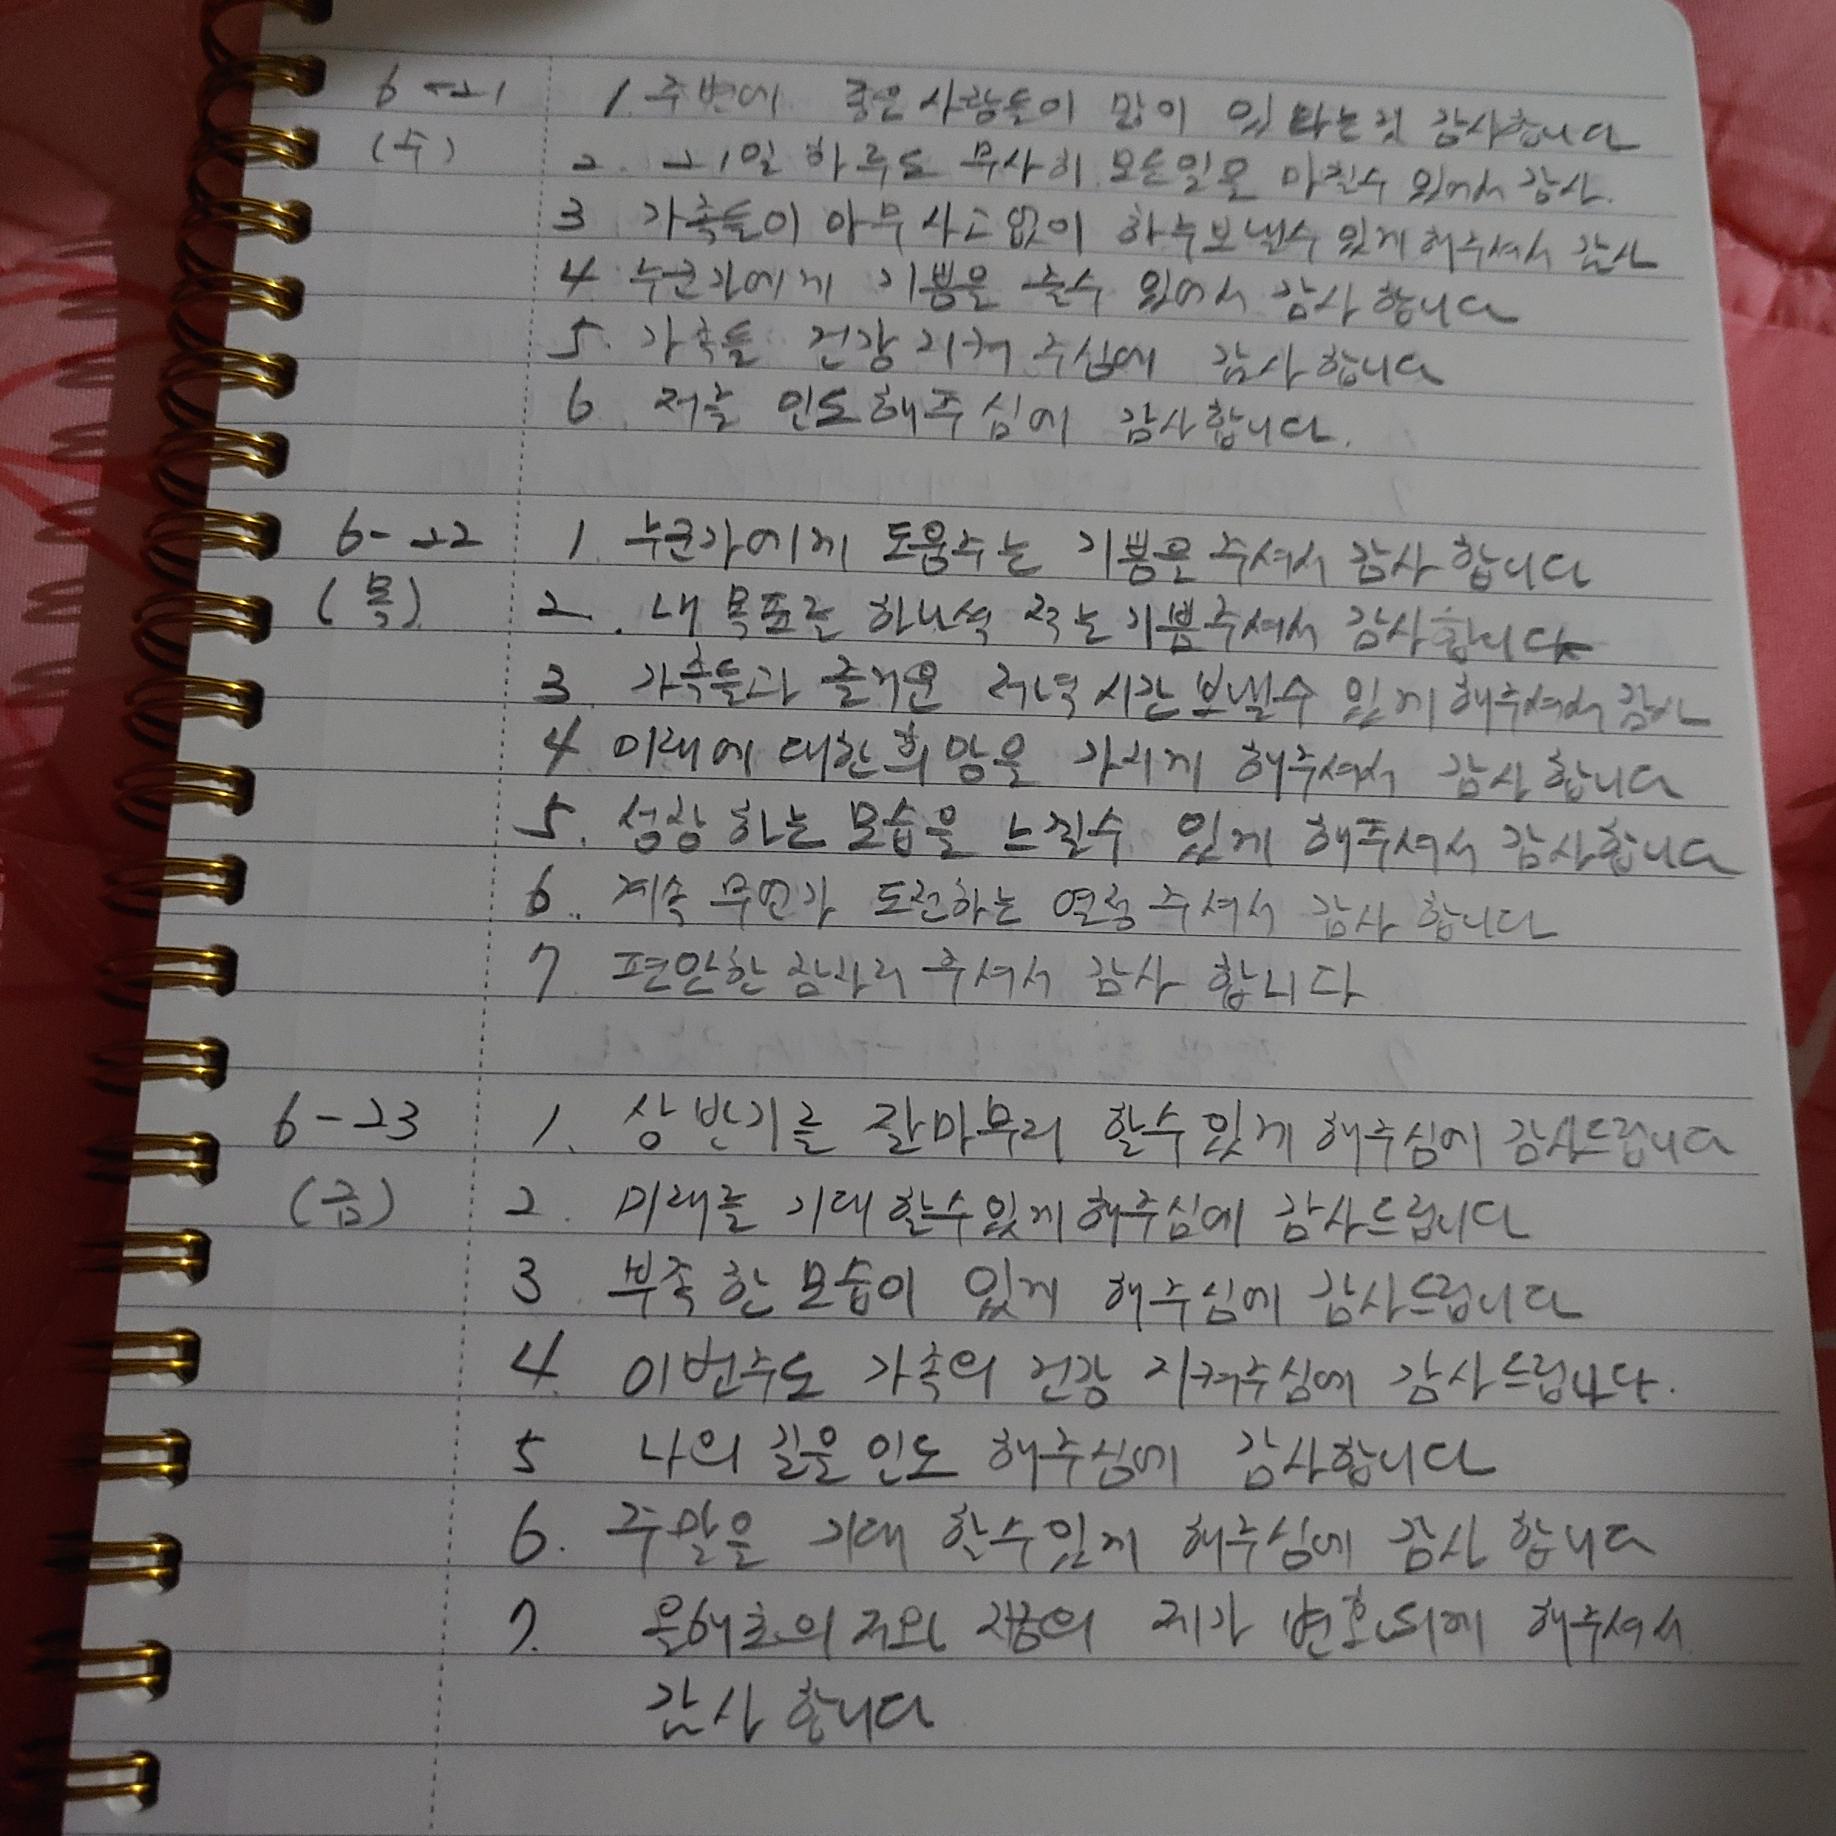 6-21 1. 주변에 좋은사람들이 많이 있다는것 감사합니다
(수) 2. 21일 하루도 무사히 모든일을 마칠수 있어서 감사.
3 가족들이 아무 사고없이 하루보낼수 있게해주셔서 감사
4 누군가에게 기쁨을 줄수 있어서 감사합니다
5. 가족들 건강지켜 주심에 감사합니다
6. 저를 인도해주심에 감사합니다.
6-22 1. 누군가에게 도움주는 기쁨을 주셔서 감사합니다
(목) 2. 내 목표를 하나씩 적는 기쁨주셔서 감사합니다
3. 가족들과 즐거운 저녁시간보낼수 있게해주셔서 감사
4 미래에 대한희망을 가지게 해주셔서 감사합니다
5. 성장하는 모습을 느낄수 있게 해주셔서 감사합니다
6. 계속 무언가 도전하는 열정주셔서 감사합니다
7 편안한 잠자리 주셔서 감사 합니다
6-23 1. 상반기를 잘마무리 할수있게 해주심에 감사드립니다
(금) 2. 미래를 기대할수있게해주심에 감사드립니다
3. 부족한모습이 있게 해주심에 감사드립니다
4. 이번주도 가족의 건강 지켜주심에 감사드립니다.
5 나의 길을인도 해주심에 감사합니다
6. 주말을 기대 할수있게 해주심에 감사 합니다
7. 올해초의 저와 지금의 제가 변화되게 해주셔서
감사 합니다